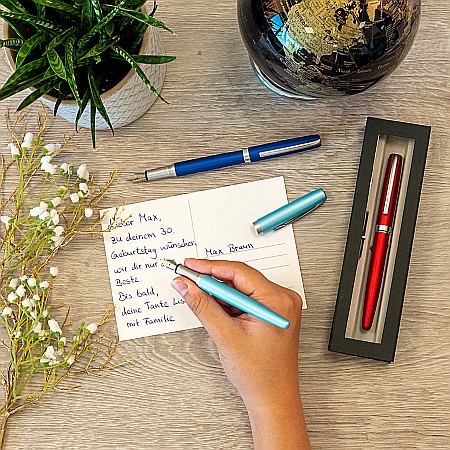 Lieber Max,
zu deinem 30.
Geburtstag wünschen
wir dir nur
Beste.
Bis bald,
deine Tante Lis
mit Familie
Max Braun